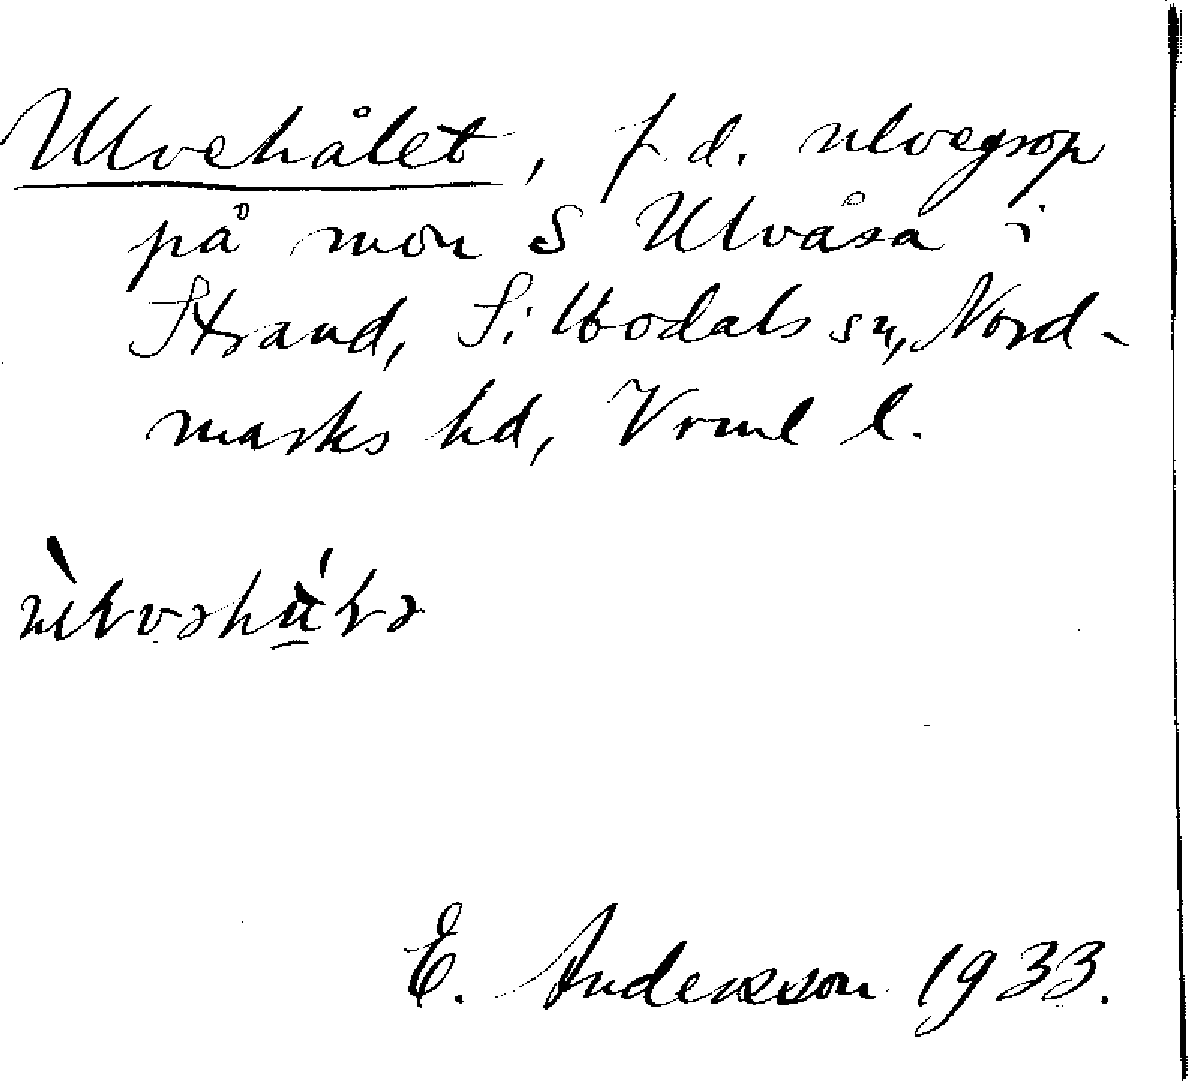 Ulvehålet, f. d. ulvegrop
på mon S Ulvåsa i
Strand, Sillbodals sn, Nord-
marks hd, Vrml l.
E. Andersson 1933.